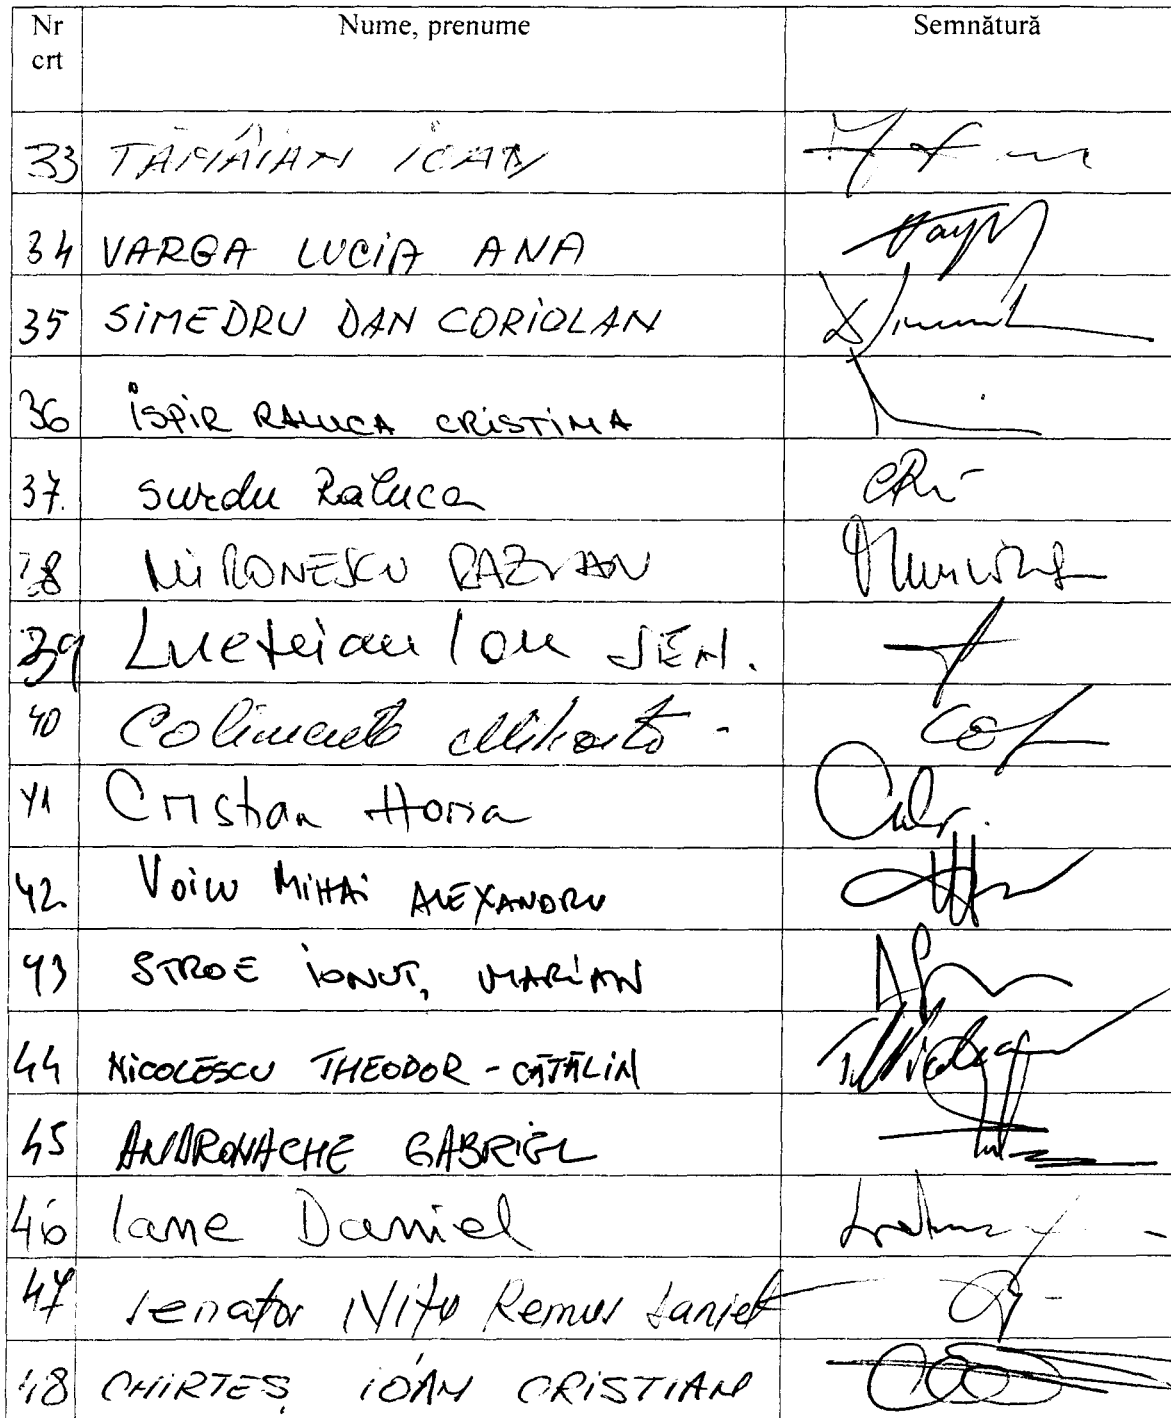 Nr crt Nume, prenume Semnătură
33 TĂMÂIAN IOAN
34 VARGA LUCIA ANA
35 SIMEDRU DAN CORIOLAN
36 ISPIR RALUCA CRISTINA
37. Surdu Raluca
38 MIRONESCU RAZVAN
39 Ion SEN.
40
41 Cristian Horia
42. Voicu MIHAI ALEXANDRU
43 STROE IONUȚ, MARIAN
44 NICOLESCU THEODOR - CĂTĂLIN
45 ANDRONACHE GABRIEL
46 Iane Daniel
47 Senator Nițu Remus Daniel
48 CHIRTEȘ IOAN CRISTIAN